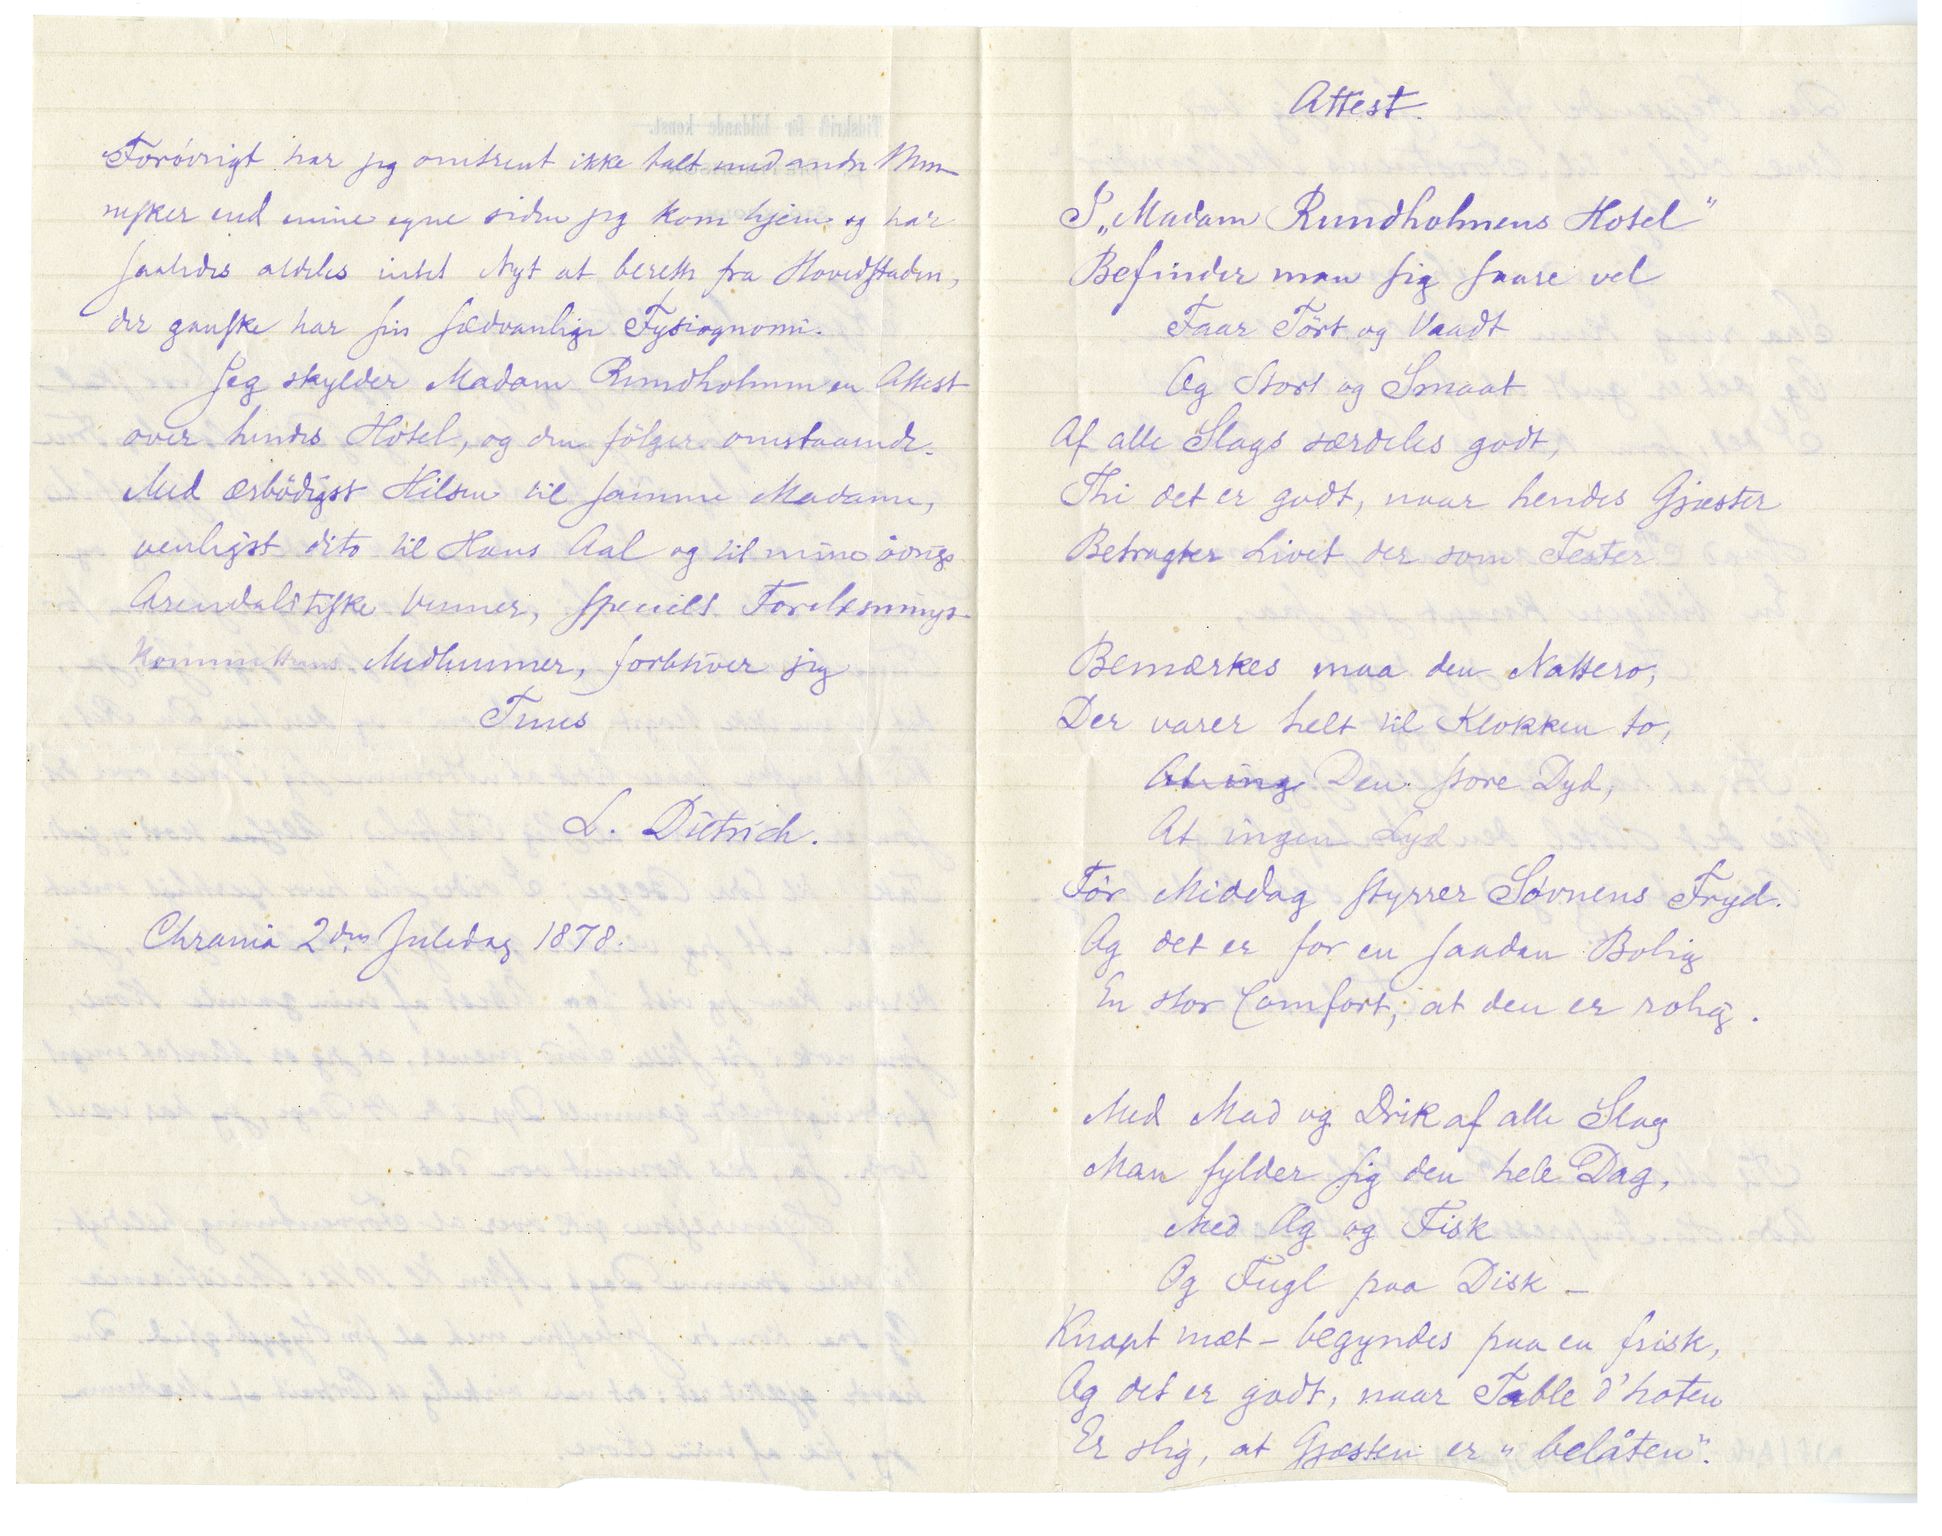 Forövrigt har jeg omtrent ikke talt med andre Men-
nesker end mine egne siden jeg kom hjem og har
saaledes aldeles intet Nyt at berette fra Hovedstaden,
der ganske har sin sædvanlige Fysiognomi.
Jeg skylder Madam Rundholmen en Attest
over hendes Hotel, og den fölger omstaaende.
Med ærbödigst Hilsen til samme Madame,
venligst dito til Hans Aal og til mine övrige
Arendalitiske Venner, specielt Forelæsnings-
kommitteens Medlemmer, forbliver jeg
Tuus
L. Dietrich.
Chrania 2den Juledag 1878.
Attest.
I „Madam Rundholmens Hotel"
Befinder man sig saare vel
Faar Tört og Vaadt
Og Stort og Smaat
Af alle Slags særdeles godt,
Thi det er godt, naar hendes Gjæster
Betragter Livet der som Fester.
Bemærkes maa den Nattero,
Der varer helt til Klokken to,
At ing Den store Dyd,
At ingen Lyd
För Middag styrrer Sövnens Fryd.
Og det er for en saadan Bolig
En stor Comfort, at den er rolig.
Med Mad og Drik af alle Slag
Man fylder sig den hele Dag,
Med Æg og Fisk
Og Fugl paa Disk –
Knapt mæt – begyndes paa en frisk,
Og det er godt, naar Table d'hoten
Er slig, at Gjæsten er „belåten".